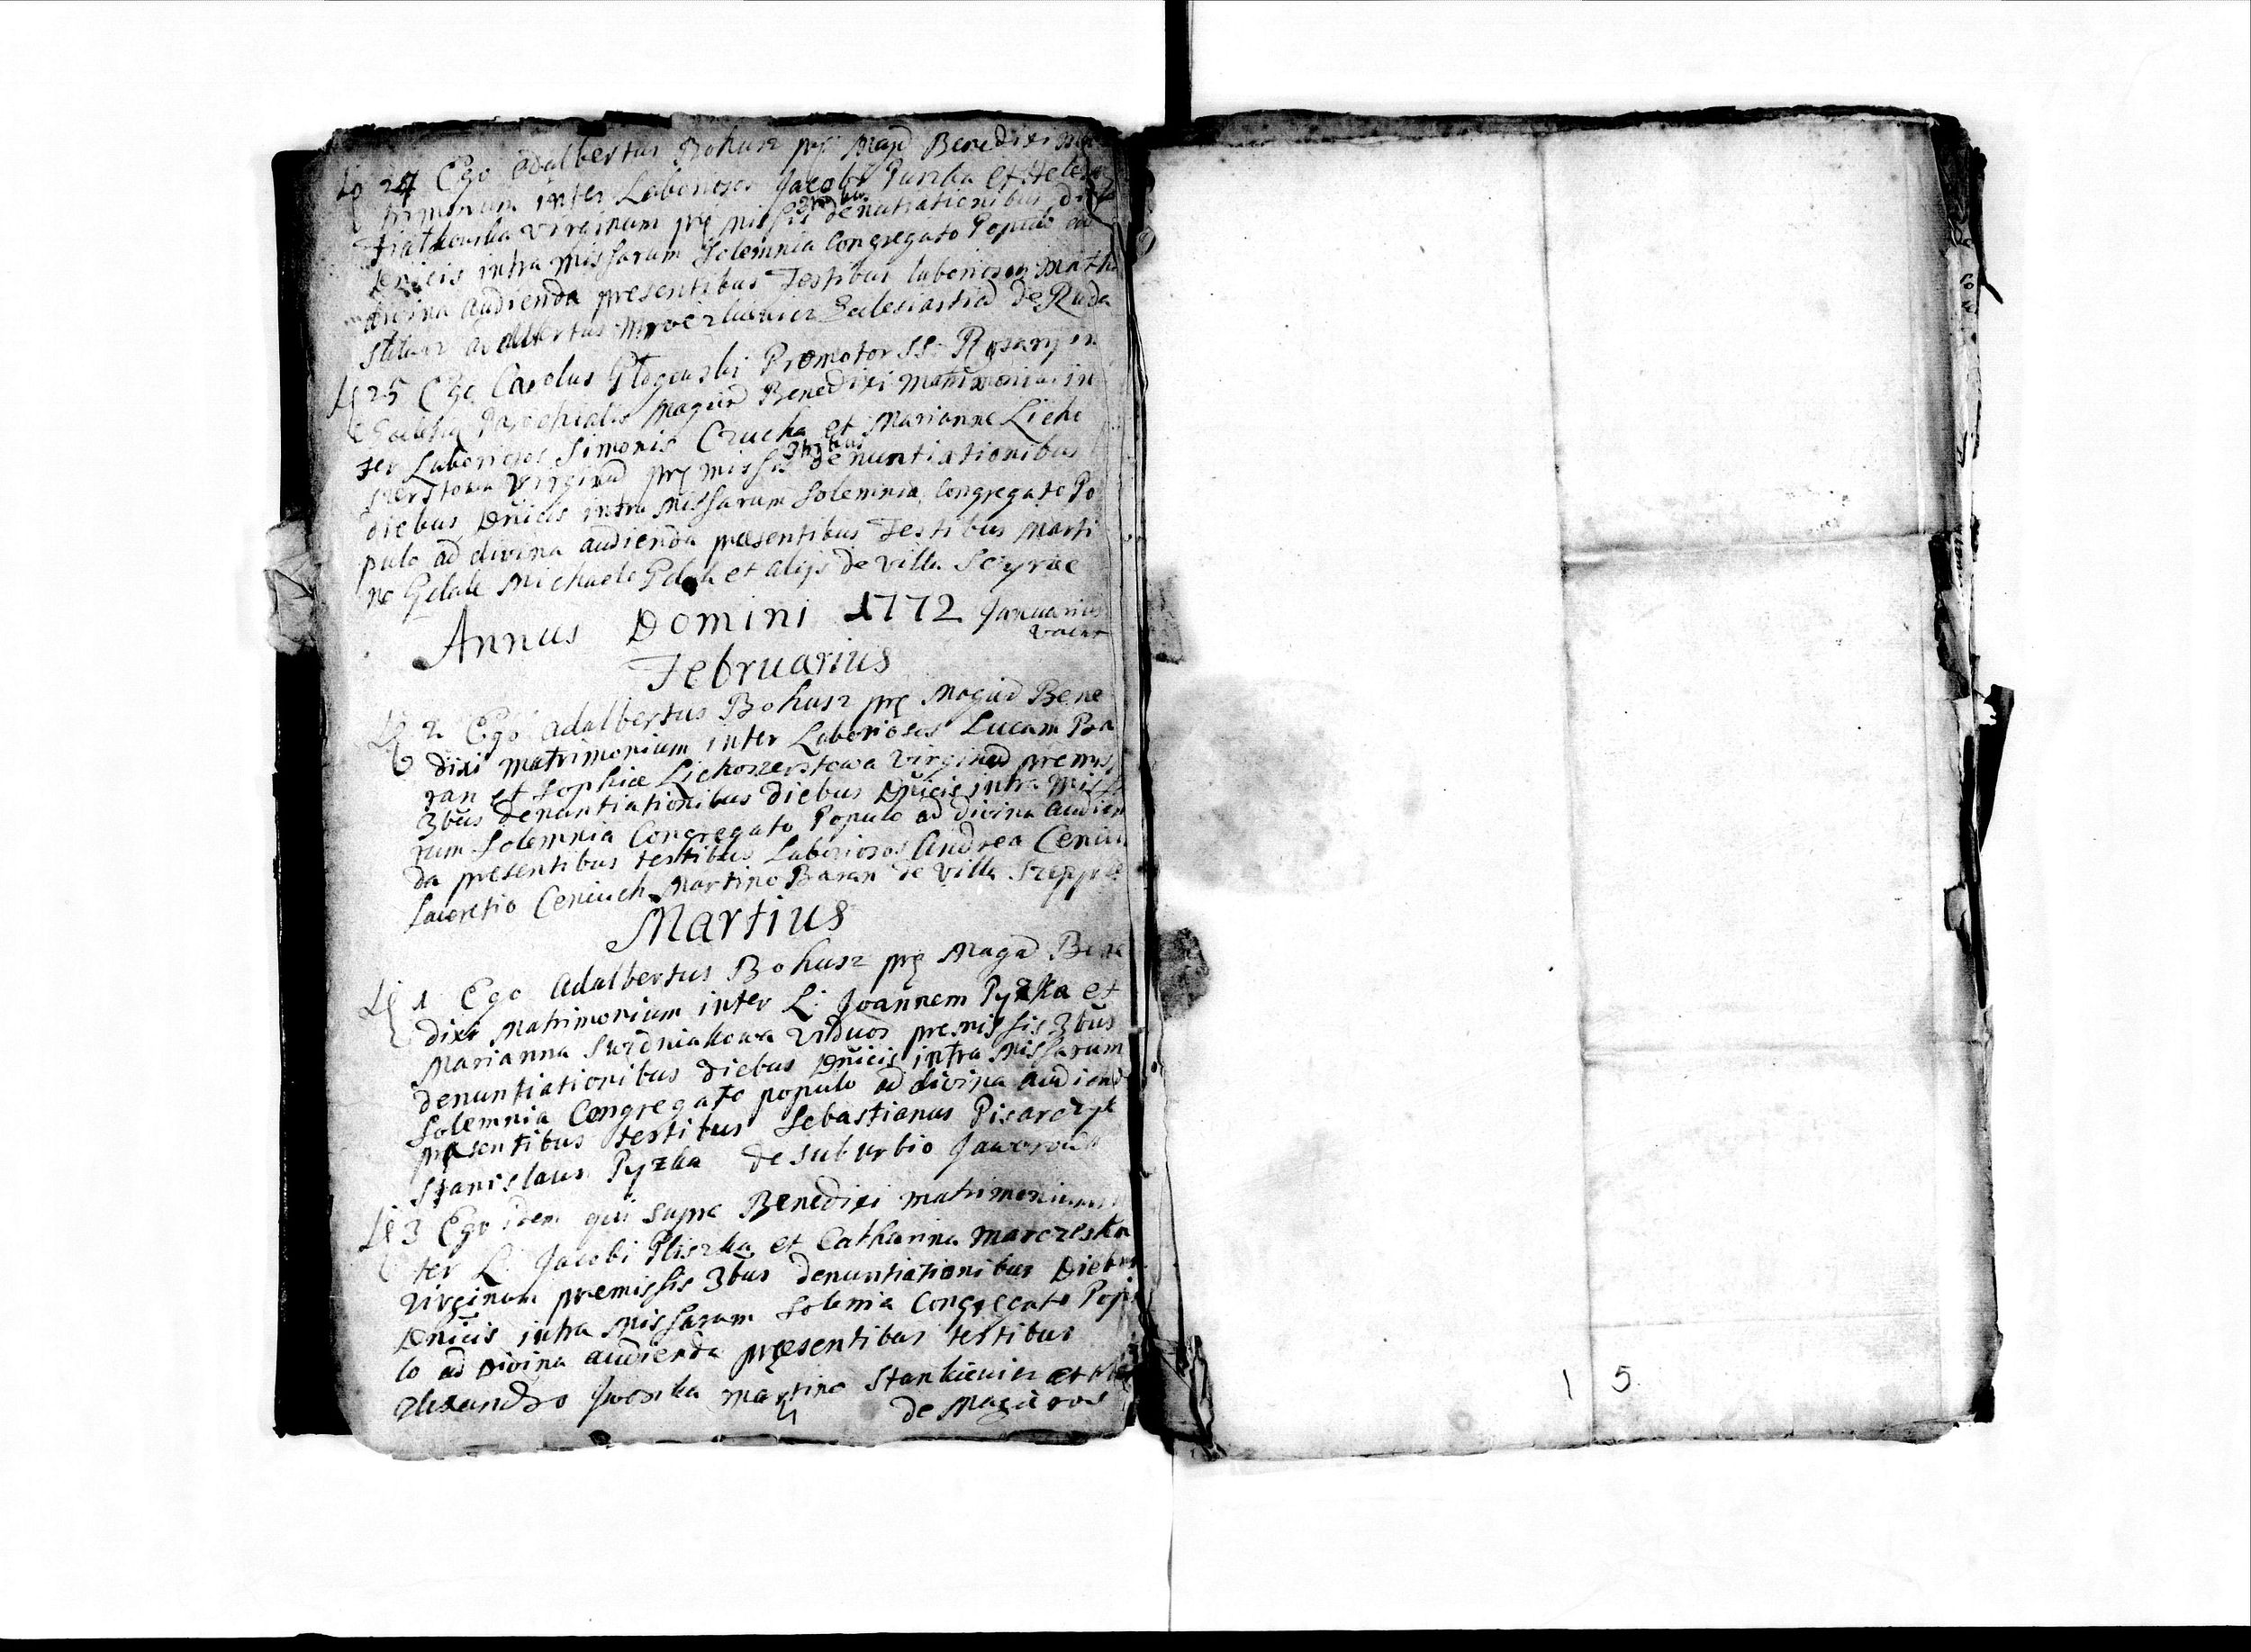 24 Ego Adalbertus Bohusz prę Magd Benedixi
trimonium inter Laboriosos Jacobi et
Virginum prę missis denutiationibus
Dnicis intra Missarum Solemnia Congregato Populo
divina audienda presentibus Testibus laboriosos Math
Adalbertus Ecclesiastid de Ruda
25 Ego Carolus Promotor SS: Rosarij in
Ecclesia Parochialis Magird Benedixi Matrimonium in
ter Laboriosos Simonis Czucha et Marianne Licho
szerstowa Virginad prę missis denuntiationibus
diebus Dnicis intra Missarum Solemnia Congregato Po
pulo ad divina audienda præsentibus Testibus Marti
no Michaele et alijs de villa Scyrae
Annus Domini 1772 Januarius
vacat
Februarius
2 Ego Adalbertus Bohusz prę Magird Bene
dixi matrimonium inter Laboriosos Lucam Ba
ran et Sophiæ Lichoszerstowa Virginad premis
3bus denuntiationibus diebus Dnicis intra Missa
rum Solemnia Congregato Populo ad divina audien
da presentibus testibus Laboriosos Andrea Ceniuch
Laurentio Ceniuch Martino Baran de Villa
Martius
1 Ego Adalbertus Bohusz prę Magd Bene
dixi Matrimonium inter L: Joannem Pyzka et
Marianna Swidniakowa Viduos premissis 3bus
denuntiationibus diebus Dnicis intra Missarum
Solemnia Congregato populo ad divina audiend
presentibus testibus Sebastianus Pisarczyk
Stanislaus Pyzka de suburbio
3 Ego idem qui supra Benedixi matrimonium
ter L: Jacobi Pliszka et Catharina
Virginum premissis 3bus denuntiationibus Diebus
Dnicis intra Missarum Solemnia Congregato Popu
lo ad Divina audienda præsentibus testibus
Alexandro Martino Stankiewicz et
de Magierow
1 5